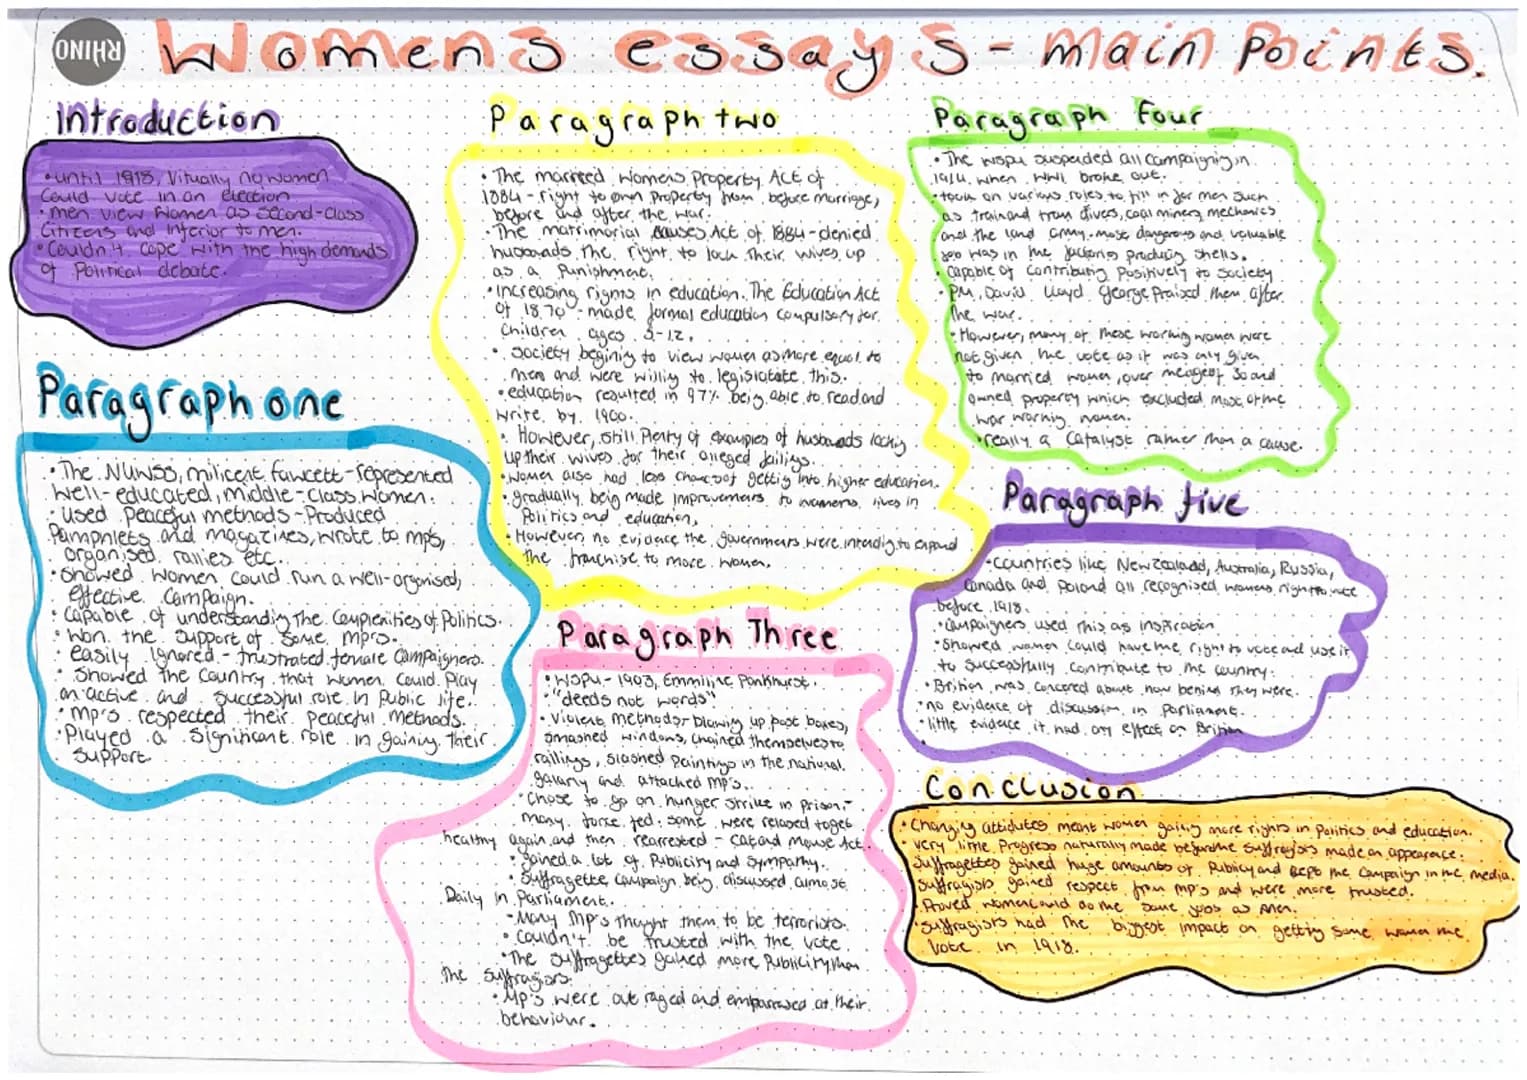 RHINO
Womens essays - main points.
Introduction
• until 1918, vitually no women
could vote in an election.
• men view women as second-class
citizens and inferior to men.
• Couldn't cope with the high demands
of Political debate.
Paragraph one
• The NUWSS, milicent fawcett - represented
well-educated, middle-class women.
• used peaceful methods - Produced
Pamphlets and magazines, wrote to mp's,
organised rallies etc.
• showed women could run a well-organised,
effective campaign.
• capable of understanding the complexities of Politics.
• won the support of some mp's.
• easily ignored - frustrated female campaigners.
• showed the country that women could play
an active and successful role in Public life.
• mp's respected their peaceful methods.
• Played a significant role in gaining their
support
Paragraph two
• The married womens Property Act of
1884 - right to own property from before marriage,
before and after the war.
• The matrimorial causes Act of 1884 - denied
husbands the right to lock their wives up
as a Punishment.
• increasing rights in education. The Education Act
of 1870 - made formal education compulsory for
children ages 5-12.
• society begining to view women as more equal to
men and were willing to legislatate this.
• education resulted in 97% being able to read and
write by 1900.
• However, still plenty of examples of husbands locking
up their wives for their alleged failings.
• women also had less chances of getting into higher education.
• gradually being made improvements to womens lives in
Politics and education,
• However, no evidence the governments were intending to expand
the franchise to more women.
Paragraph Three
• WSPU - 1903, Emmiline Pankhurst.
• "deeds not words"
• violent methods - blowing up post boxes,
smashed windows, chained themselves to
railings, slashed paintings in the national
galary and attacked mp's.
• Chose to go on hunger strike in prison -
many force fed, some were relased to get
healthy again and then rearrested - cat and mouse Act.
• gained a lot of Publicity and sympathy.
• suffragette campaign being discussed almost
Daily in Parliament.
- Many mp's thought them to be terrorists.
• couldn't be trusted with the vote
• The suffragettes gained more Publicity than
the suffragists.
• Mp's were outraged and embarrased at their
behaviour.
Paragraph Four
• The WSPU suspended all campaigning in
1914 when WW1 broke out.
• took on various roles to fill in for men such
as train and tram drivers, coal miners, mechanics
and the land army. most dangerous and valuable
job was in the factories producing shells.
• capable of contributing positively to society
• PM, David Lloyd George Praised them after
the war.
• However, many of these working women were
not given the vote as it was only given
to married women, over the age of 30 and
owned property which excluded most of the
war working women.
• really a catalyst rather than a cause.
Paragraph five
• countries like New Zealand, Australia, Russia,
Canada and Poland all recognised womens right to vote
before 1918.
• campaigners used this as inspiration
• showed women could have the right to vote and use it
to successfully contribute to the country.
• Britian was concered about how behind they were.
• no evidence of discussion in Parliament.
• little evidence it had any effect on Britian
Conclusion
• Changing attidutes meant women gaining more rights in Politics and education.
• very little Progress naturally made before the suffragists made an appearence.
• suffragettes gained huge amounts of Publicity and kept the campaign in the media.
• suffragists gained respect from MP's and were more trusted.
• Proved women could do the same jobs as men.
• suffragists had the biggest impact on getting some women the
vote in 1918.